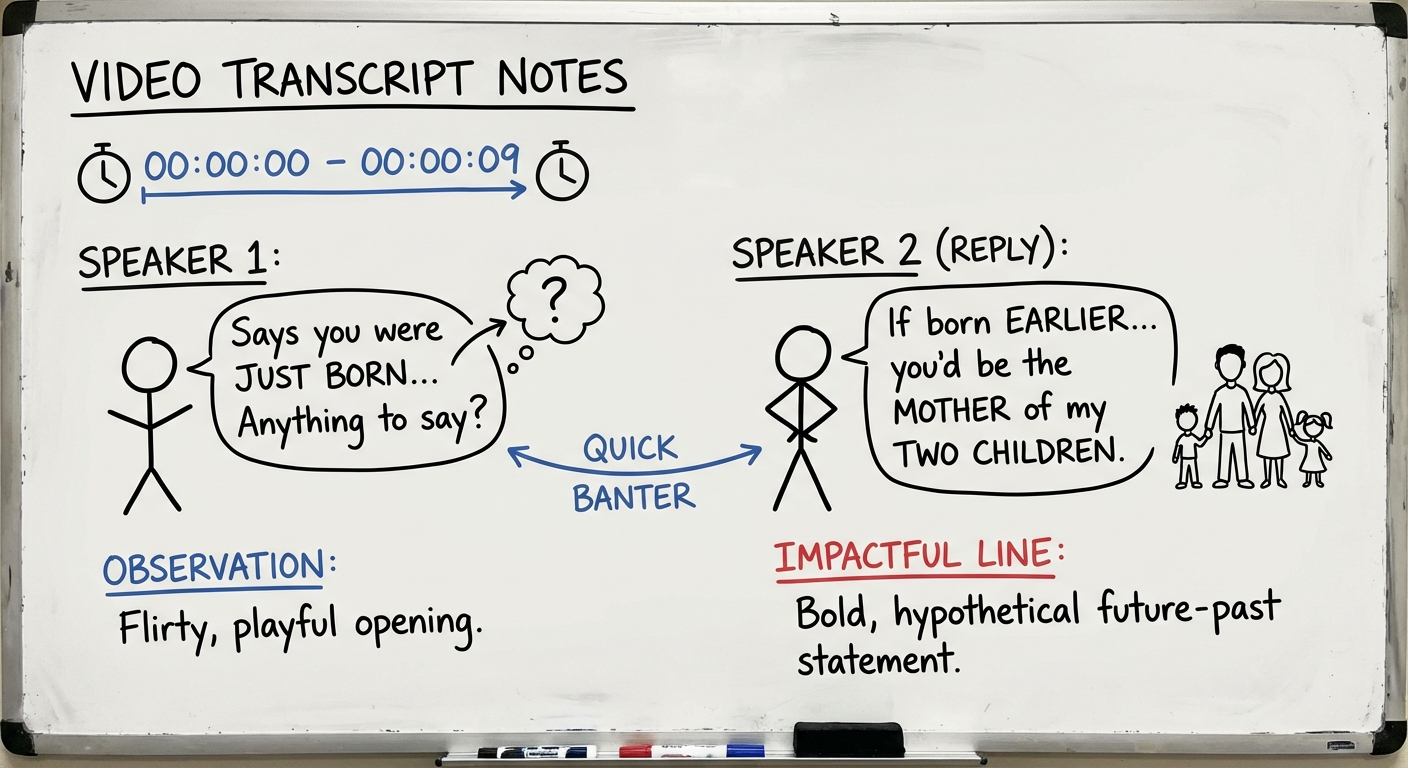 VIDEO TRANSCRIPT NOTES
00:00:00 – 00:00:09
SPEAKER 1:
Says you were
JUST BORN...
Anything to say?
?
QUICK
BANTER
SPEAKER 2 (REPLY):
If born EARLIER...
you'd be the
MOTHER of my
TWO CHILDREN.
OBSERVATION:
Flirty, playful opening.
IMPACTFUL LINE:
Bold, hypothetical future-past
statement.